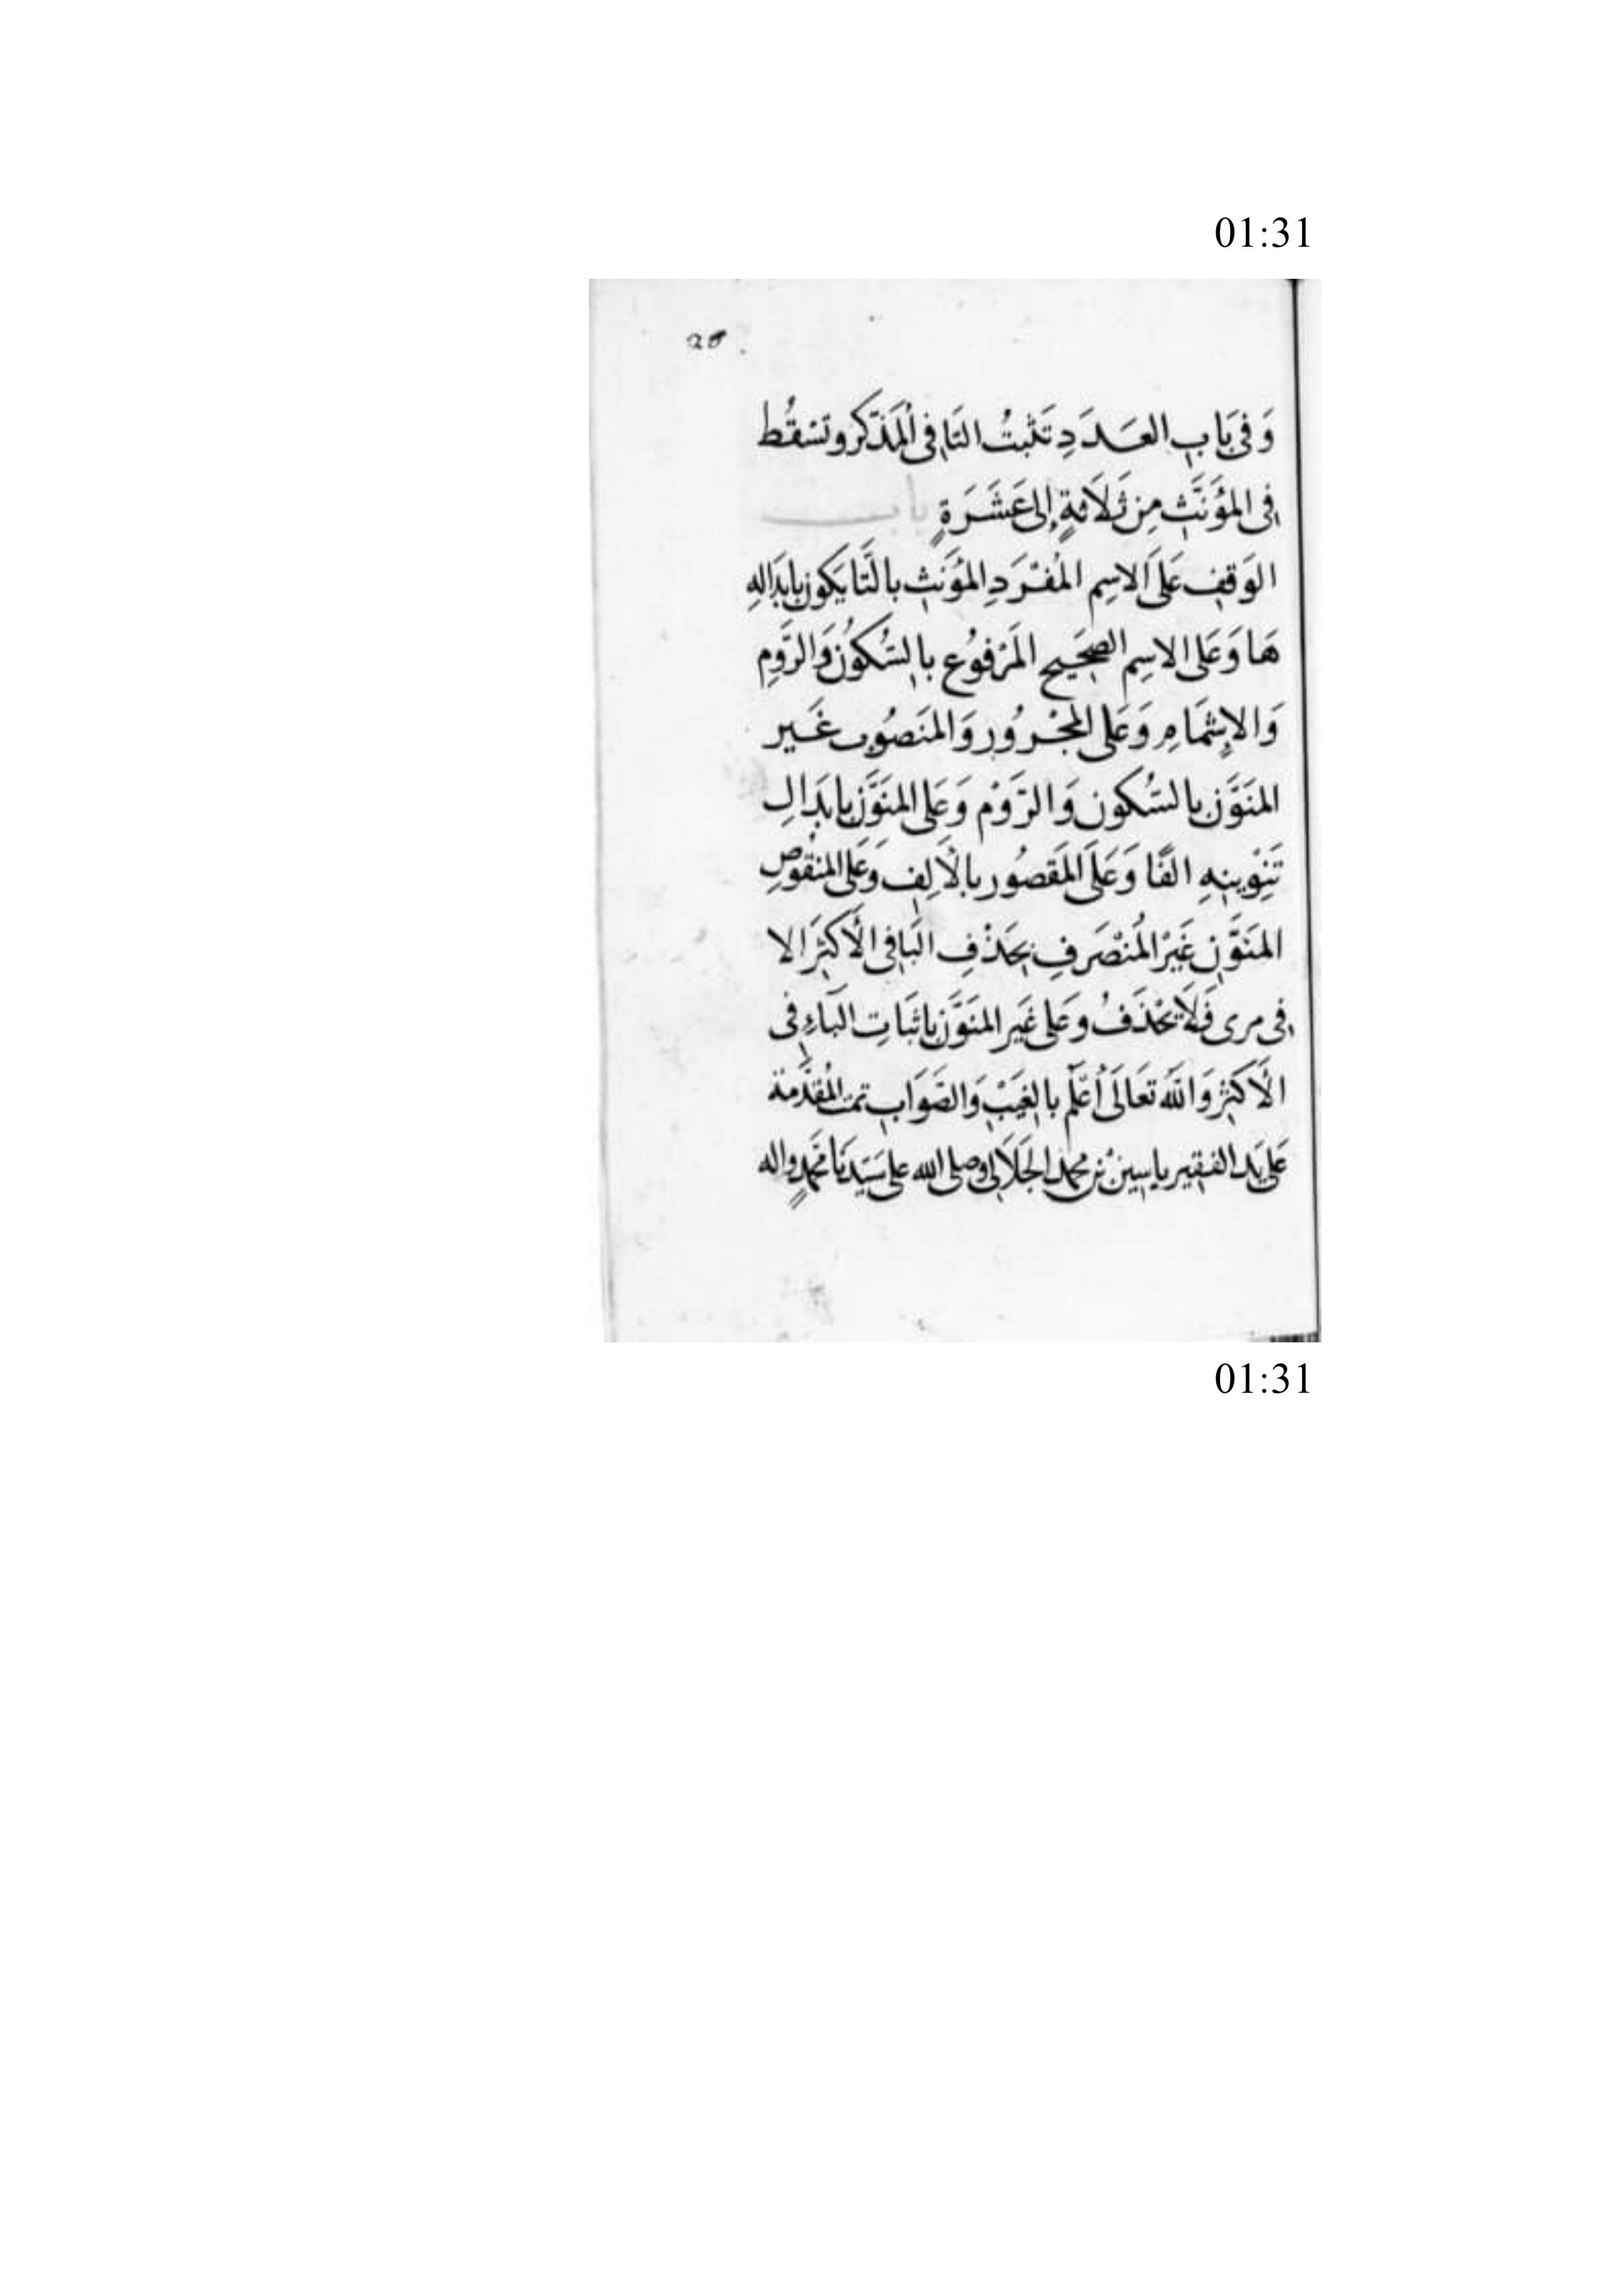 01:31
وَفِى بَابِ العَدَدِ تَثْبُتُ التَا فِى المُذَكَّرِ وتسْقُط
فِى المؤَنَّثِ مِن ثَلَاثَةٍ إِلى عَشَرَةٍ بابـــ
الوَقفِ عَلَى الاسِمِ المُفْرَدِ المؤَنثِ بالتَّا يَكون بابدَالهِ
هَا وَعَلى الاسِمِ الصَحَيحِ المَرْفُوُعِ بالسُّكُون وَالرَّومِ
وَالإِشْمَامِ وَعَلى المجْرُورِ وَالمنَصُوبِ غَير
المنَوَّن بالسُّكون وَالرَّوْم وَعَلى المنَوَّن بابدَالِ
تَنِوْينِهِ الفًا وَعَلَى المَقصُور بالأَلِفِ وَعَلى المنْقُوصِ
المنَوَّنِ غَيْر المُنْصَرفِ بحَذْفِ اليَا فِى الأَكثَر الا
فِى مرى فَلَا يُحْذَفُ وعَلى غَير المنَوَّن باثبَاتِ اليَاءِ فى
الأَكثَرْ وَاللّٰه تعَالَى أَعْلَم بالغَيَبْ وَالصَوَابِ تمت المُقدَّمة
عَلى يَد الفقير ياسين بن محمد الجَلَالى وصلى الله على سَيّدَنَا مُحَمَّدٍ واله
01:31